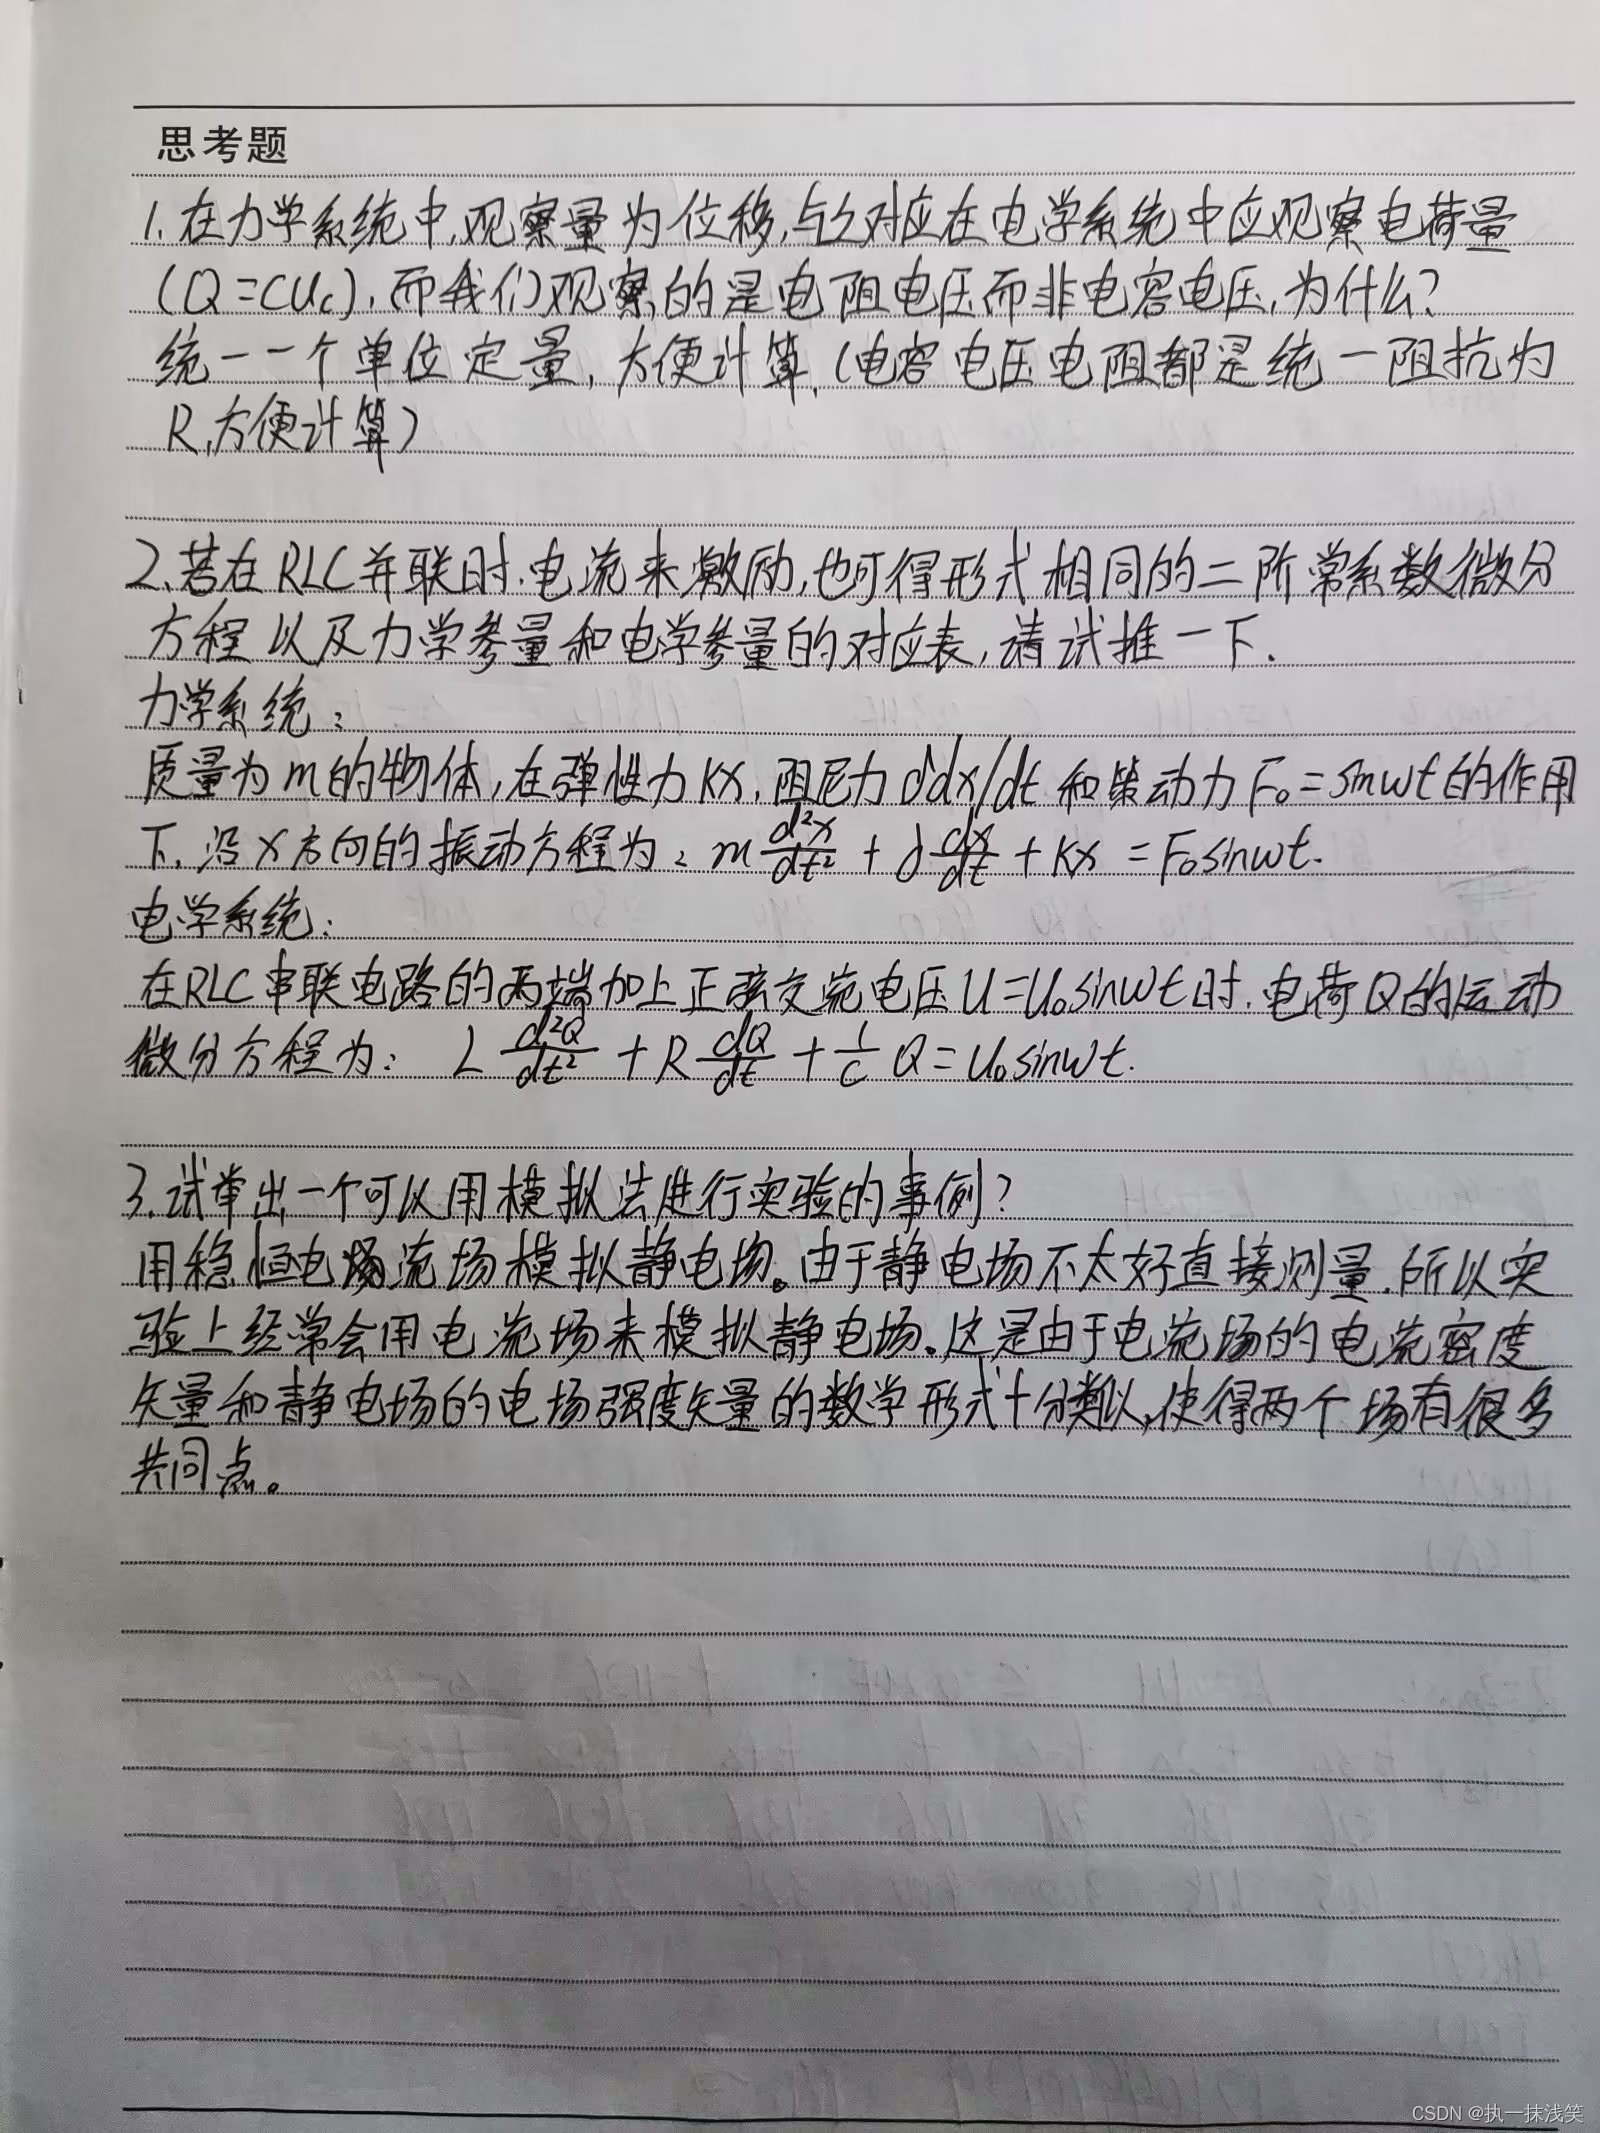 思考题
1.在力学系统中,观察量为位移,与之对应在电学系统中应观察电荷量
(Q=CUc),而我们观察的是电阻电压而非电容电压,为什么?
统一一个单位定量,方便计算.(电容电压电阻都是统一阻抗为
R,方便计算)
2.若在RLC并联时.电流来激励,也可得形式相同的二阶常系数微分
方程以及力学参量和电学参量的对应表,请试推一下.
力学系统:
质量为m的物体,在弹性力Kx,阻尼力δdx/dt和策动力F₀=sinwt的作用
下.沿X方向的振动方程为: m d²x/dt² + δ dx/dt + Kx = F₀sinwt.
电学系统:
在RLC串联电路的两端加上正弦交流电压U=U₀sinwt时.电荷Q的运动
微分方程为: L d²Q/dt² + R dQ/dt + 1/C Q=U₀sinwt.
3.试举出一个可以用模拟法进行实验的事例?
用稳恒电流场模拟静电场。由于静电场不太好直接测量.所以实
验上经常会用电流场来模拟静电场。这是由于电流场的电流密度
矢量和静电场的电场强度矢量的数学形式十分类似,使得两个场有很多
共同点。
CSDN @执一抹浅笑